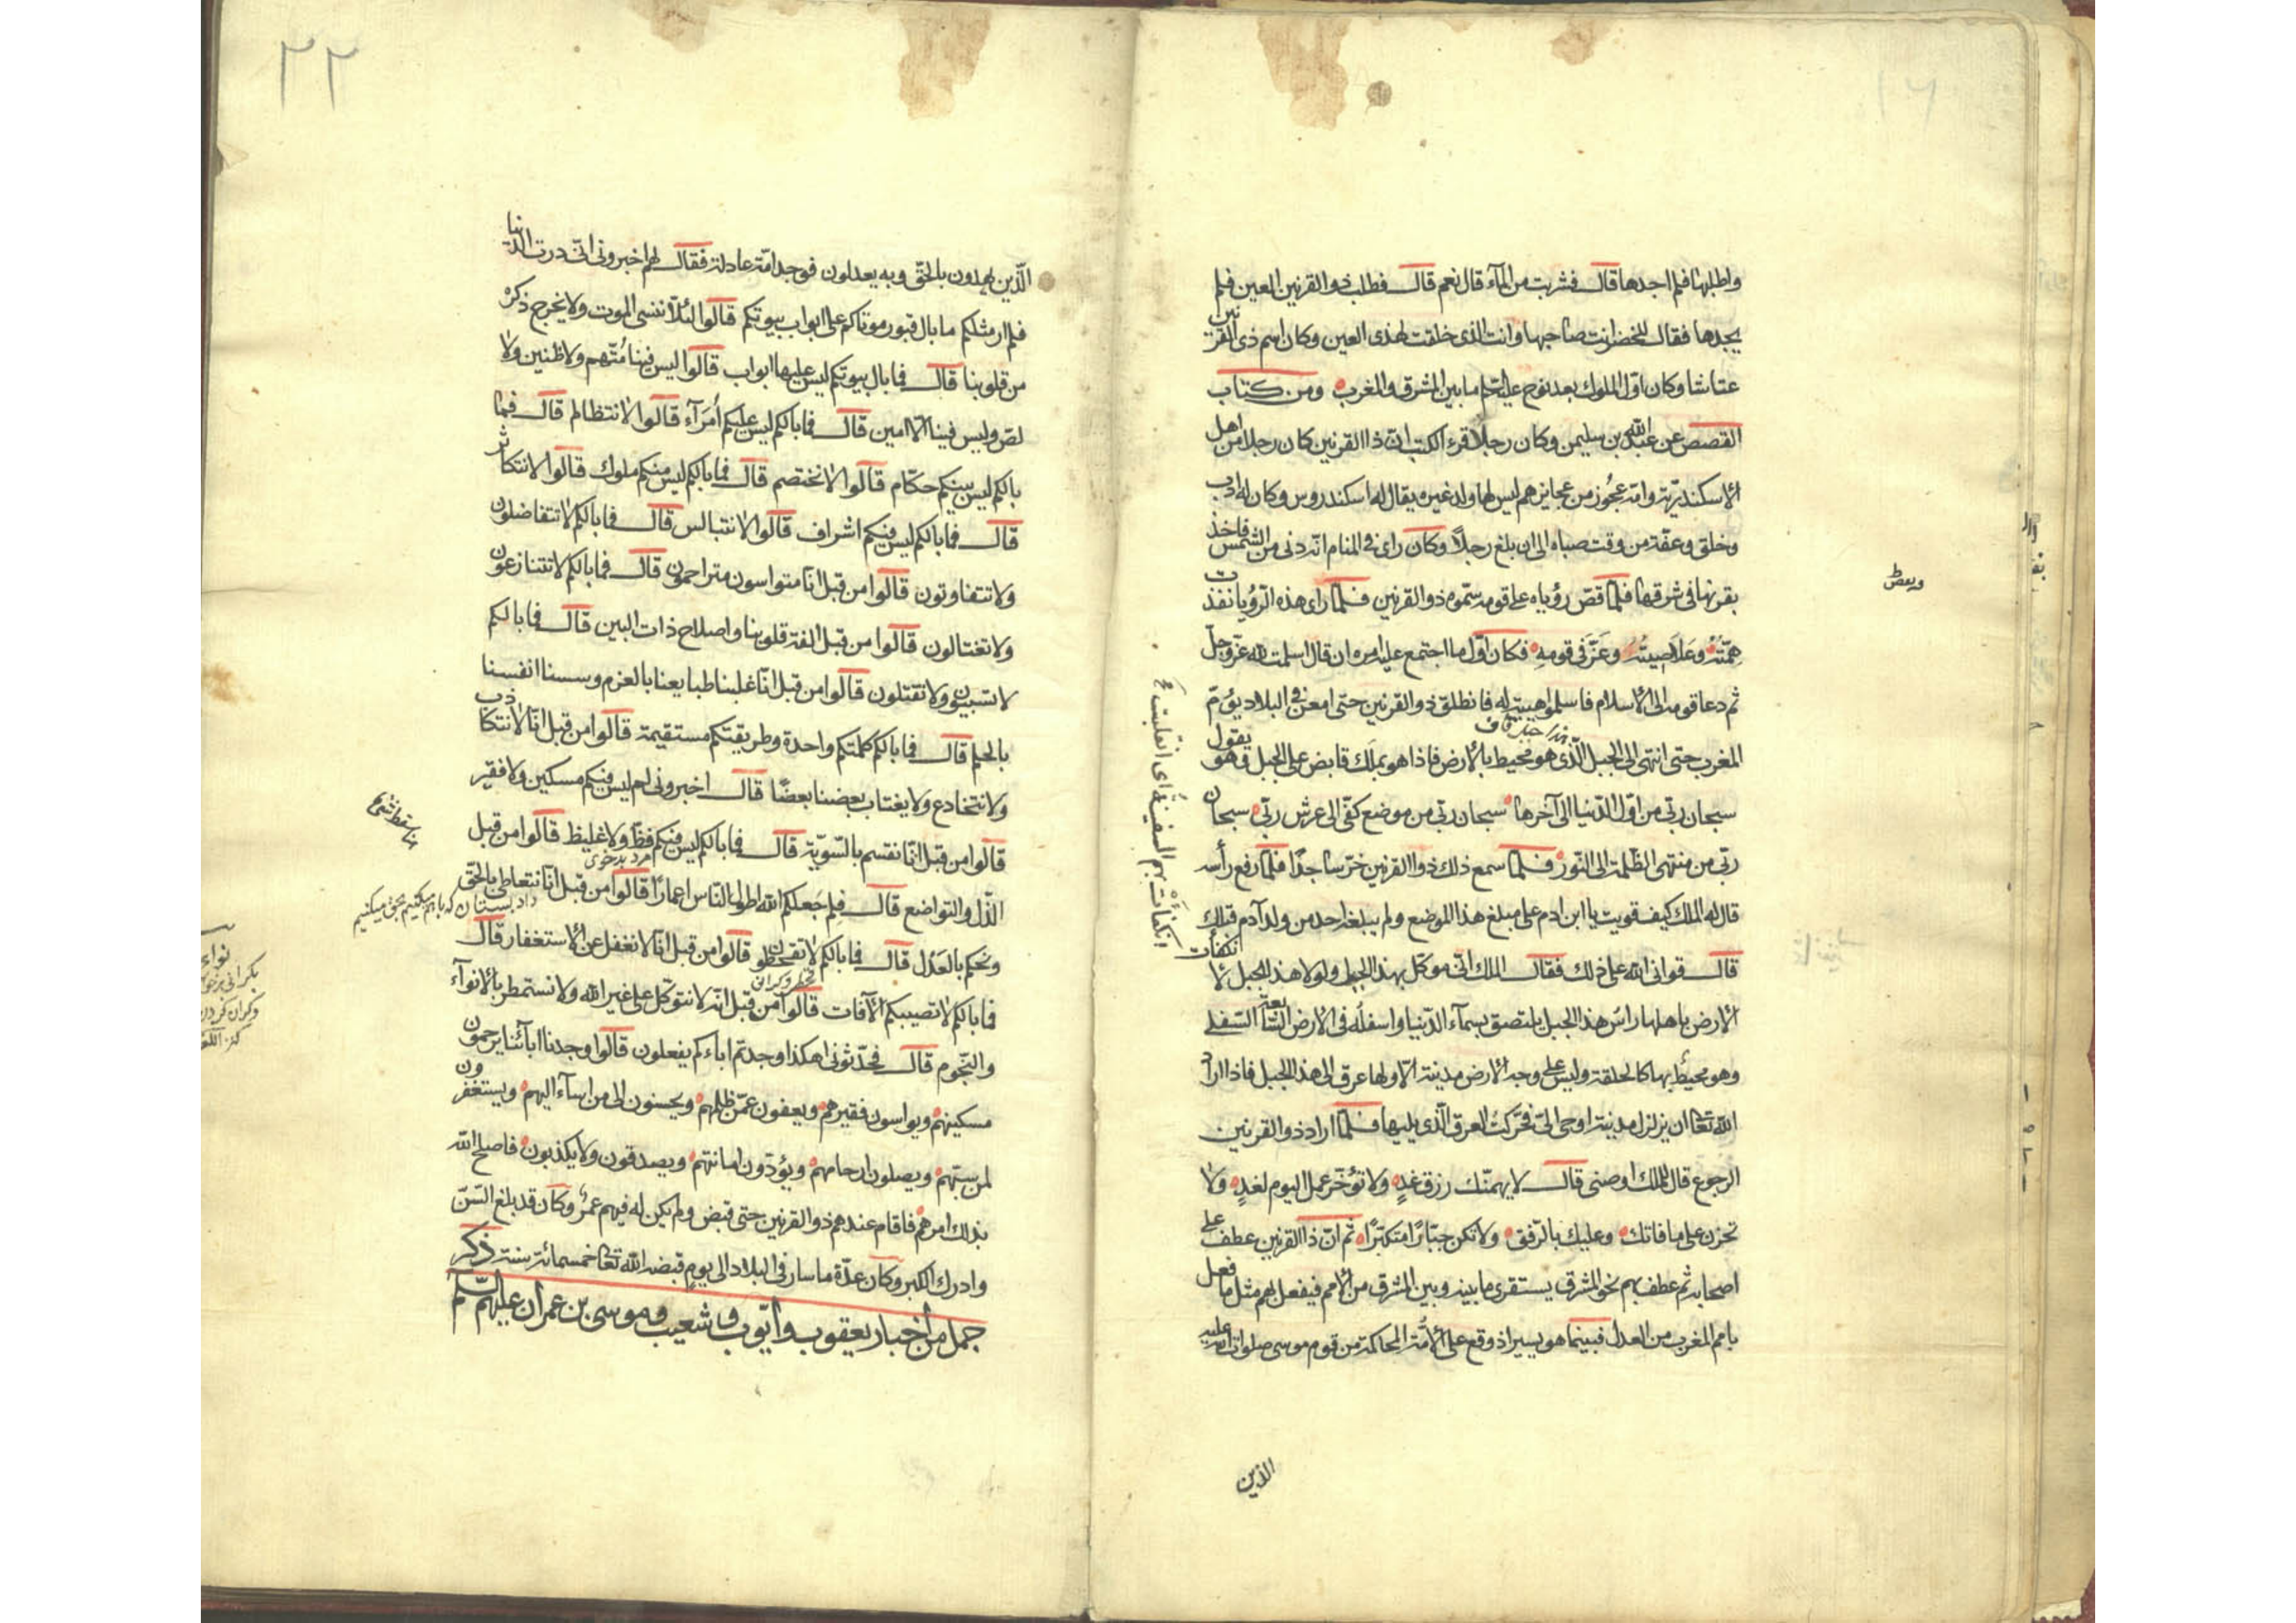 واطلبها فلم اجدها قال فشربت من المآء قال نعم قال فطلب ذو القرنين العين فلم
يجدها فقال للخضر انت صاحبها وانت الذى خلقت لهذى العين وكان اسم ذى القرنين
عياشا وكان اوّل الملوك بعد نوح عليه السّلم ما بين المشرق والمغرب ومن كتاب
القصص عن عبد الله بن سليمن وكان رجلا قرء الكتب انّ ذا القرنين كان رجلا من اهل
الاسكندريّة وامّه عجُوز من عجايزهم ليس لها ولد غيره يقال له اسكندروس وكان له ادب
وخلق وعفّة من وقت صباه الى ان بلغ رجلاً وكان راى فى المنام انّه دنى من الشّمس فاخذ
بقرنها فى شرقها فلمّا قصّ رؤياه على قومه سمّوه ذو القرنين فلمّا راى هذه الرّؤيا نفذت
همّتُهُ وعَلا صيتُهُ وعَزَّ فى قومهِ فكان اوّل ما اجتمع عليه امره ان قال اسلمت لله عزّ وجلّ
ثم دعا قومه الى الاسلام فاسلموا هيبة له فانطلق ذو القرنين حتى امعن فى البلاد يؤمّ
هذا جبل قاف
المغرب حتى انتهى الى الجبل الّذى هو محيط بالارض فاذا هو بملك قابض على الجبل وهو يقول
سبحان ربّى من اوّل الدّنيا الى آخرها سبحان ربّى من موضع كفّى الى عرش ربّى سبحان
ربّى من منتهى الظّلمة الى النّور فلمّا سمع ذلك ذو القرنين خرّ ساجدًا فلمّا رفع رأسه
قال له الملك كيف قويت يا ابن ادم على مبلغ هذا الموضع ولم يبلغه احد من ولد آدم قبلك
قال قوانى الله على ذلك فقال الملك انّى موكّل بهذا الجبل ولولا هذا الجبل لانكفأت
الارض باهلها راسُ هذا الجبل ملتصق بسمآء الدّنيا واسفلُه فى الارض السّابعة السّفلى
وهو محيطٌ بها كالحلقة وليس على وجه الارض مدينة الّا ولها عرق الى هذا الجبل فاذا اراد
الله تعالى ان يزلزل مدينة اوحى الىّ فحّركتُ العرق الّذى يليها فلمّا اراد ذو القرنين
الرجوع قال للملك اوصنى قال لا يهمّنّك رزق غدٍ ولا تؤخّر عمل اليوم لغدٍ ولا
تحزن على ما فاتك وعليك بالرّفق ولا تكن جبّارًا متكبّرًا ثم انّ ذا القرنين عطف على
اصحابه ثم عطف بهم نحو المشرق يستقرى ما بينه وبين المشرق من الامم فيفعل بهم مثل ما فعل
بامم المغرب من العدل فبينما هو يسير اذ وقع على الامّة الحاكمة من قوم موسى صلوات الله عليه
الذين
وبعض
انكفات بهم السفينة اى انقلبت
٢٢
الّذين يهدون بالحّق وبه يعدلون فوجد امّة عادلة فقال لهم اخبرونى انّى درت الدّنيا
فلم ار مثلكم ما بال قبور موتاكم على ابواب بيوتكم قالوا لئلّا ننسى الموت ولا يخرج ذكره
من قلوبنا قال فما بال بيوتكم ليس عليها ابواب قالوا ليس فينا مُتّهم ولا ظنين ولا
لصّ وليس فينا الّا امين قال فما بالكم ليس عليكم أُمَرآء قالوا لا نتظالم قال فما
بالكم ليس بينكم حكّام قالوا لا نختصم قال فما بالكم ليس منكم ملوك قالوا لا نتكاثر
قال فما بالكم ليس فيكم اشراف قالوا لا نتبالس قال فما بالكم لا تتفاضلون
ولا تتفاوتون قالوا من قبل انّا متواسون متراحمون قال فما بالكم لا تتنازعون
ولا تغتالون قالوا من قبل الفة قلوبنا واصلاح ذات البين قال فما بالكم
لا تسبيون ولا تقتلون قالوا من قبل انّا غلبنا طبايعنا بالعزم وسسنا انفسنا
بالحلم قال فما بالكم كلمتكم واحدة وطريقتكم مستقيمة قالوا من قبل انّا لا نتكاذب
ولا نتخادع ولا يغتاب بعضنا بعضًا قال اخبرونى لم ليس فيكم مسكين ولا فقير
قالوا من قبل انّا نقسم بالسّويّة قال فما بالكم ليس فيكم فظّ ولا غليظ قالوا من قبل
مرد بدخوى
الذّل والتواضع قال فلم جَعلكم الله اطول النّاس اعمارًا قالوا من قبل انّا نتعاطى بالحّق
داد بستان كه با هم ميكنيم بحق ميكنيم
ونحكم بالعَدل قال فما بالكم لا تقحطون قالوا من قبل انّا لا نغفل عن الاستغفار قال
فما بالكم لا تصيبكم الآفات قالوا من قبل انّه لا نتوكّل على غير الله ولا نستمطر بالانوآء
والنّجوم قال فحدّثونى اهكذا وجدتم اباءكم يفعلون قالوا وجدنا ابآئنا يرحمون
مسكينهم ويواسون فقيرهم ويعفون عمّن ظلمهم ويحسنون الى من اسآء اليهم ويستغفرون
لمن سبّهم ويصلون ارحامهم ويؤدّون امانتهم ويصدقون ولا يكذبون فاصلح الله
بذلك امرهم فاقام عندهم ذو القرنين حتى قبض ولم يكن له فيهم عمرٌ وكان قد بلغ السّنّ
وادرك الكبر وكان عدّة ما سار فى البلاد الى يوم قبضه الله تعالى خمسمائة سنة ذكر
جمل من أخبار يعقوب وايّوب وشعيب وموسى بن عمران عليهم السّلم